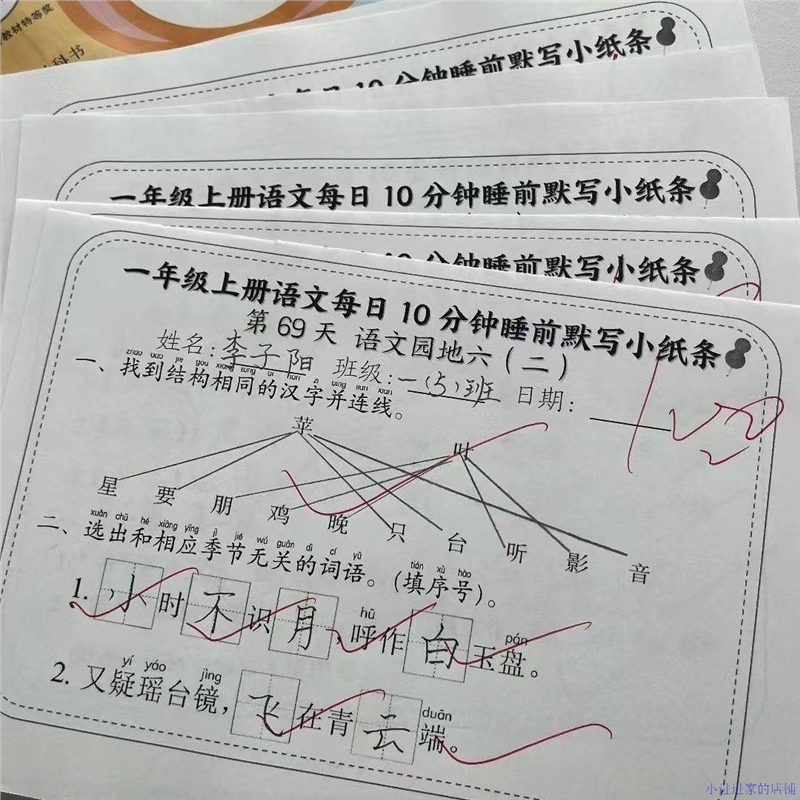 教材特等奖
科书
10分钟睡前默写小纸条
一年级上册语文每日10分钟睡前默写小纸条
10分钟睡前默写小纸条
一年级上册语文每日10分钟睡前默写小纸条
第69天 语文园地六(二)
姓名:李子阳 班级:一(5)班 日期:
一、找到结构相同的汉字并连线。
苹 叶
星 要 朋 鸡 晚 只 台 听 影 音
xuǎn chū hé xiāng yìng jì jié wú guān dí cí yǔ tián xù hào
二、选出和相应季节无关的词语。(填序号)。
hū pán
1.小时不识月,呼作白玉盘。
yí yáo jìng duān
2.又疑瑶台镜,飞在青云端。
100
小过过家的店铺